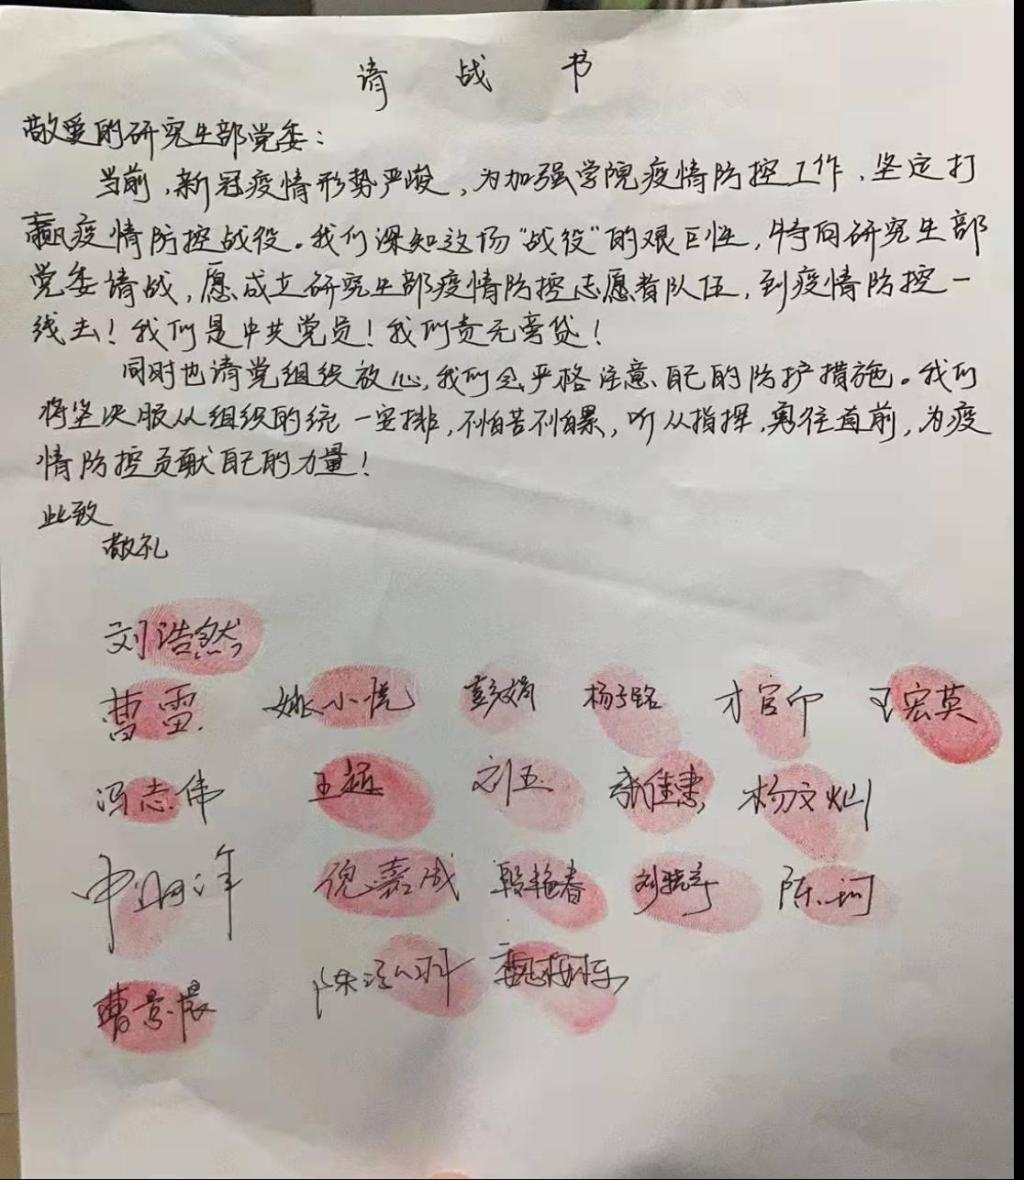 请战书
敬爱的研究生部党委：
当前，新冠疫情形势严峻，为加强学院疫情防控工作，坚定打
赢疫情防控战役。我们深知这场“战役”的艰巨性，特向研究生部
党委请战，愿成立研究生部疫情防控志愿者队伍，到疫情防控一
线去！我们是中共党员！我们责无旁贷！
同时也请党组织放心，我们会严格注意自己的防护措施。我们
将坚决服从组织的统一安排，不怕苦不怕累，听从指挥，勇往直前，为疫
情防控贡献自己的力量！
此致
敬礼
刘浩然
曹雷 姚小悦 彭娟 杨子铭 才官印 王宏英
冯志伟 王超 刘五 张佳惠 杨文灿
倪嘉成 殷艳春 陈珂
曹景晨